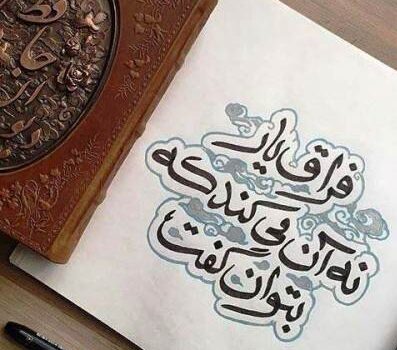 فراق یار
نه آن می کند که
بتوان گفت